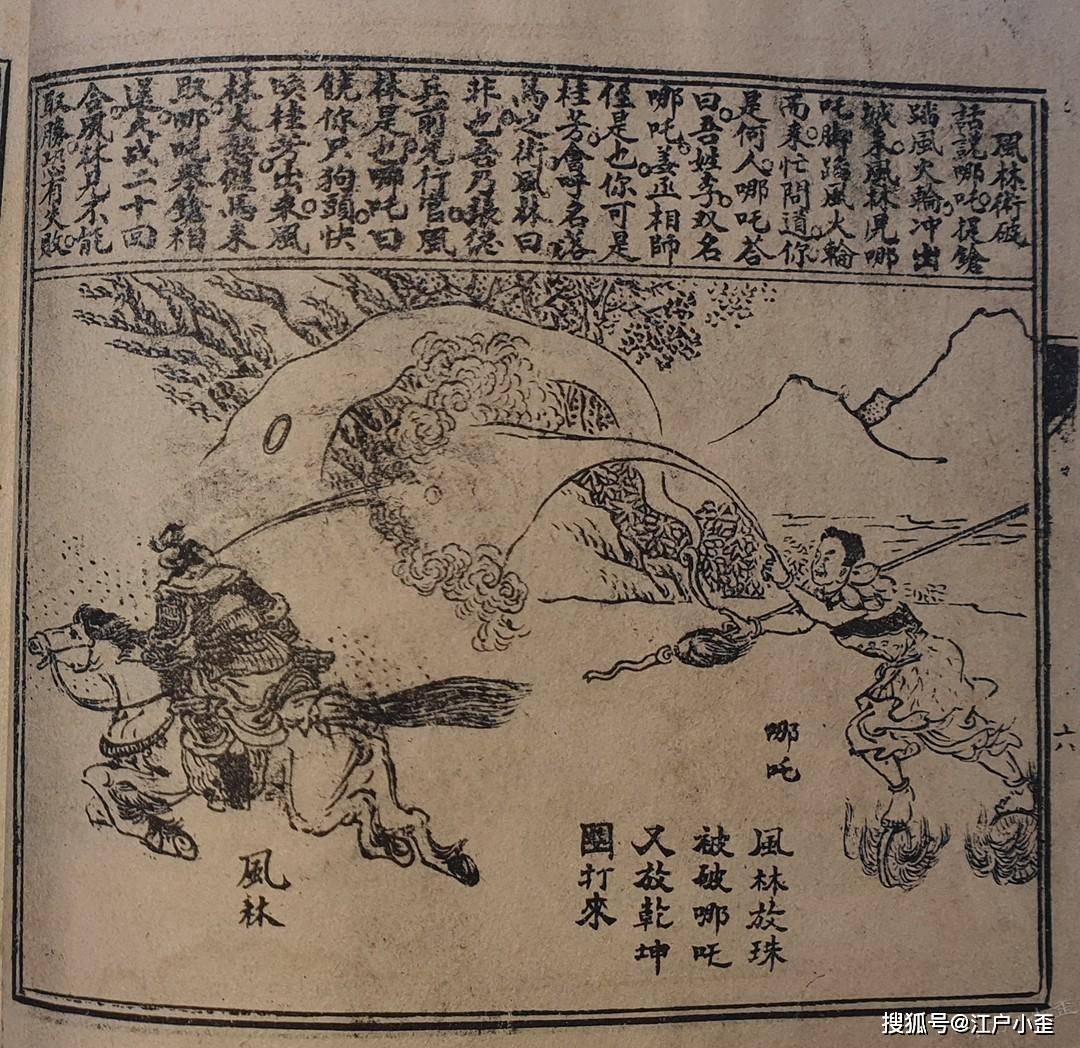 風林術破
話説哪吒提鎗
踏風火輪冲出
城来風林見哪
吒脚踏風火輪
而来忙問道你
是何人哪吒荅
曰吾姓李双名
哪吒姜丞相師
侄是也你可是
桂芳會呼名落
馬之術風林曰
非也吾乃張
兵前先行官風
林是也哪吒曰
饒你只狗頭快
喚桂芳出来風
林大怒催馬来
取哪吒舉鎗相
大战二十回
合風林見不能
取勝恐有失敗
哪吒
風林放珠
被破哪吒
又放乾坤
圈打來
風林
六
搜狐号@江户小歪